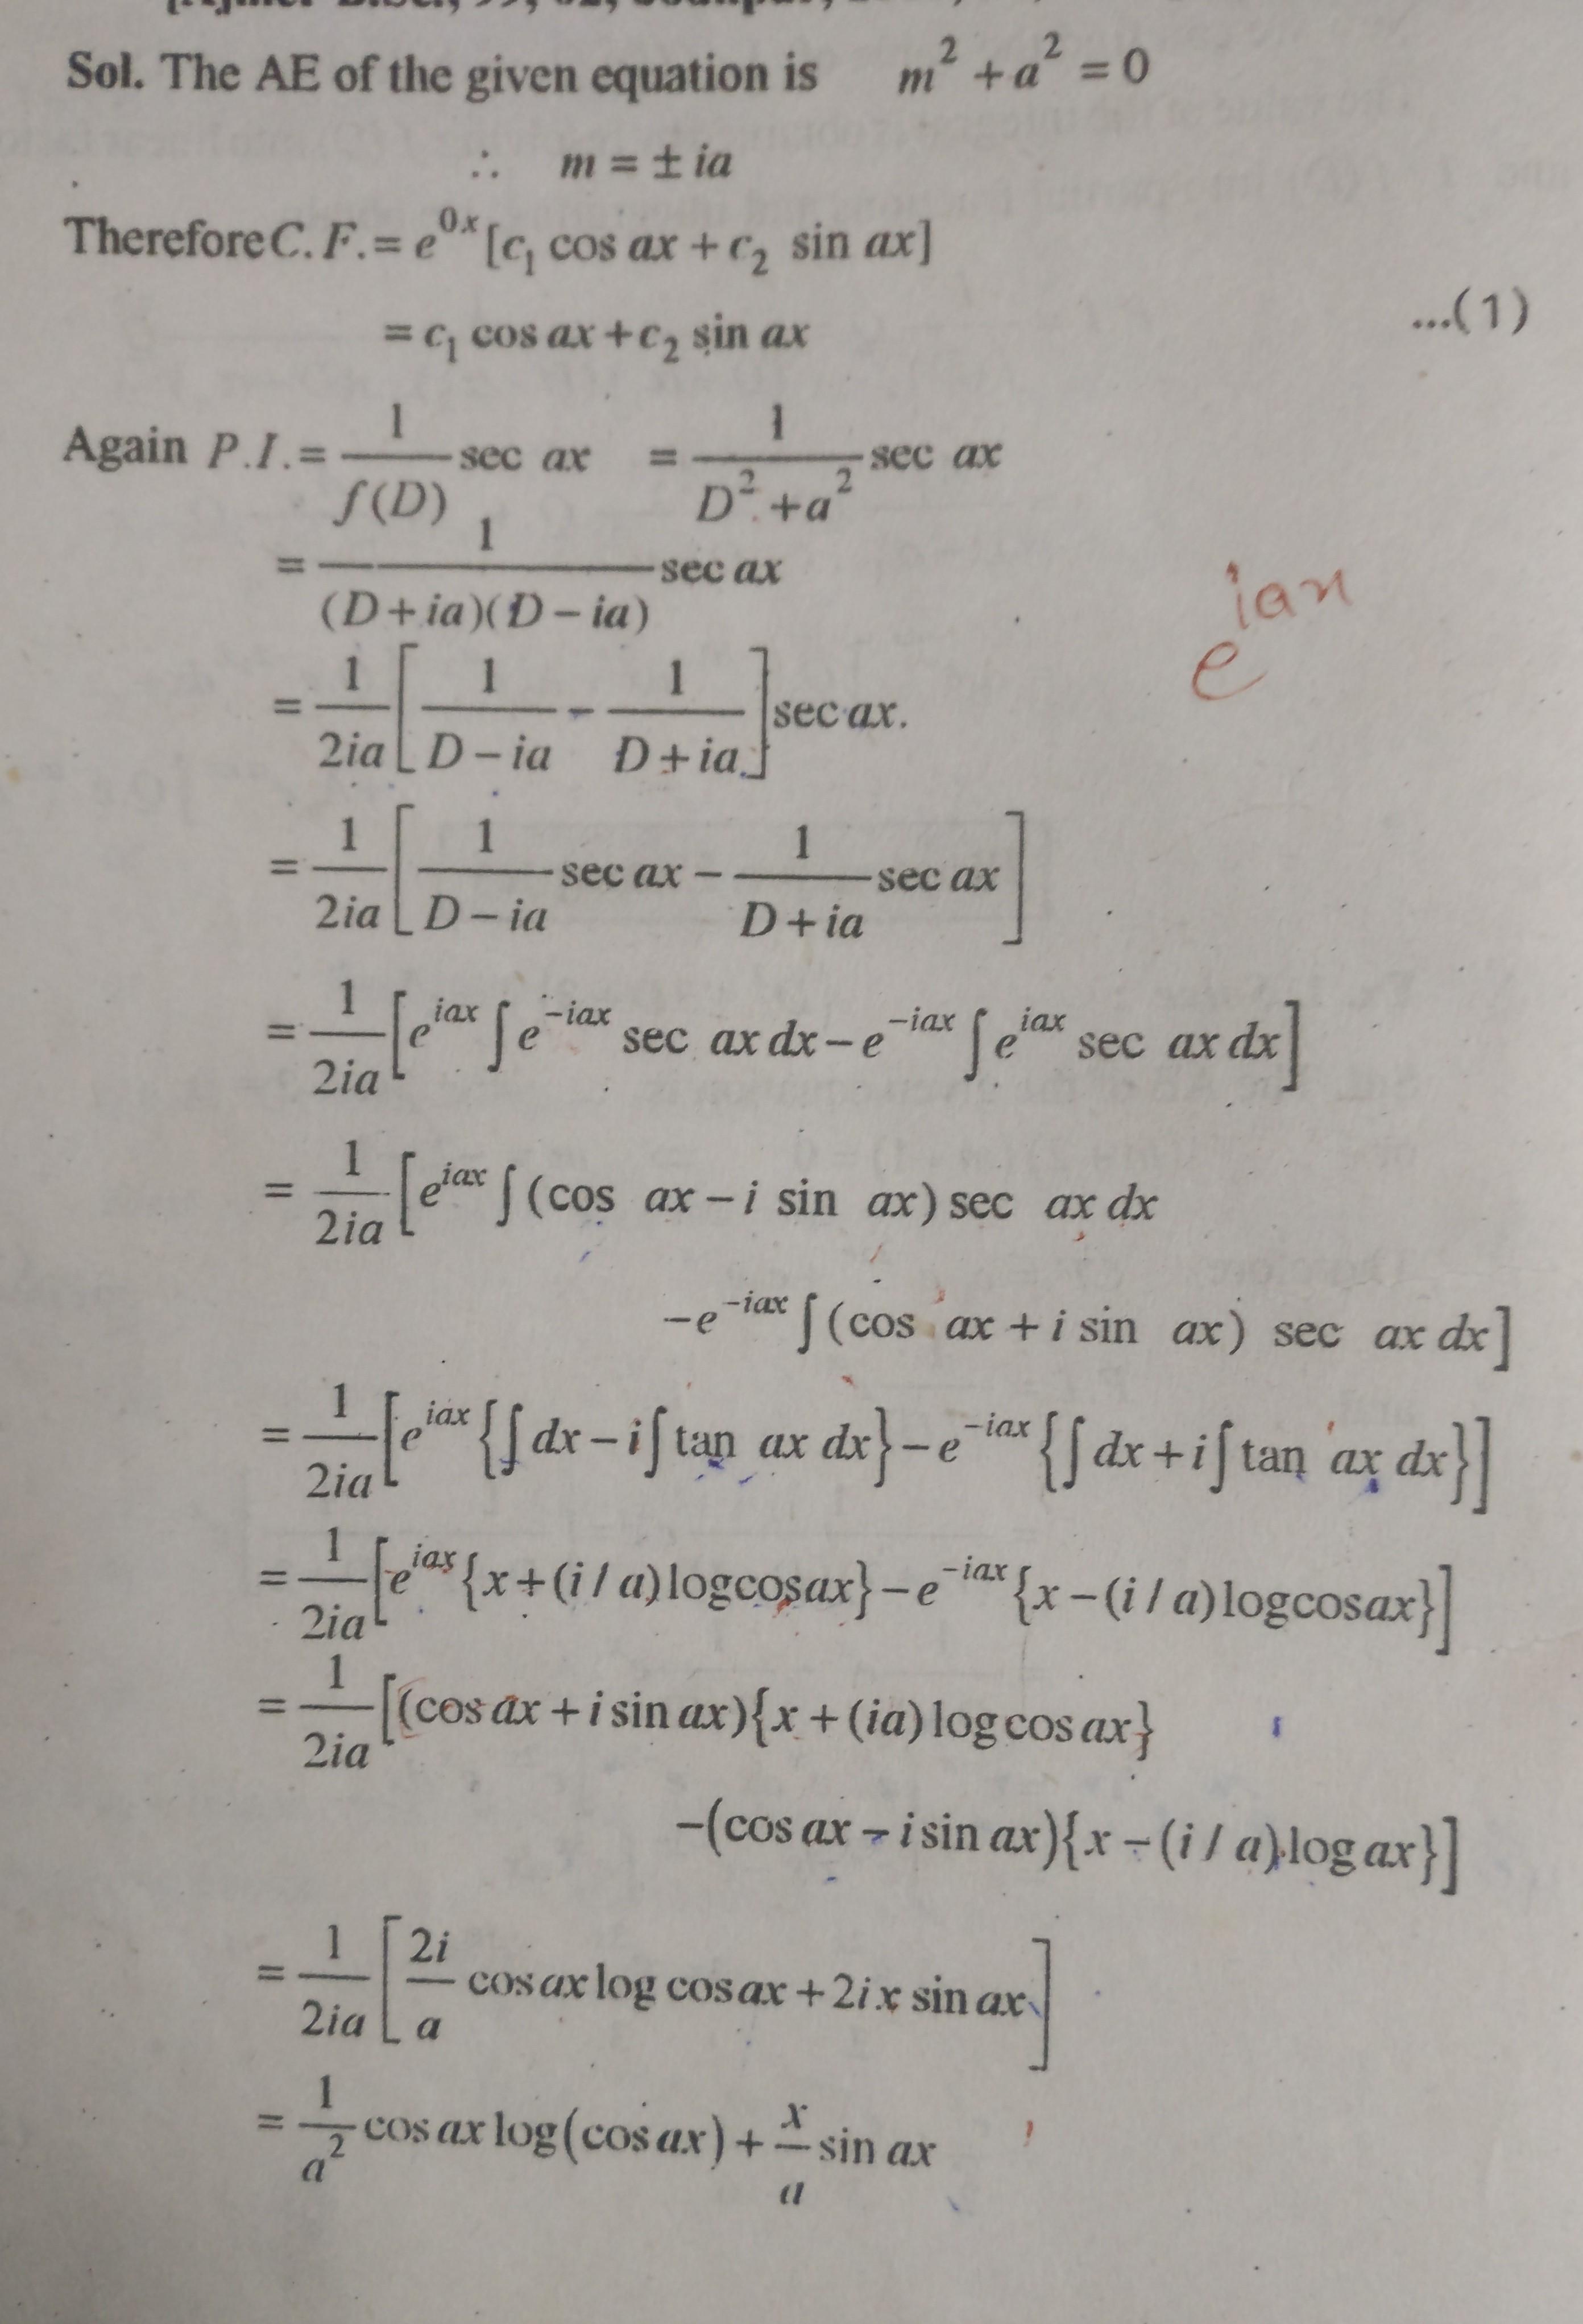 Sol. The AE of the given equation is m² + a² = 0
∴ m = ± ia
Therefore C. F. = e^{0x} [c₁ cos ax + c₂ sin ax]
= c₁ cos ax + c₂ sin ax ...(1)
Again P.I. = 1/f(D) sec ax = 1/(D² + a²) sec ax
= 1/((D + ia)(D – ia)) sec ax
e^{iax}
= 1/2ia [1/(D – ia) – 1/(D + ia)] sec ax.
= 1/2ia [1/(D – ia) sec ax – 1/(D + ia) sec ax]
= 1/2ia [e^{iax} ∫ e^{–iax} sec ax dx – e^{–iax} ∫ e^{iax} sec ax dx]
= 1/2ia [e^{iax} ∫ (cos ax – i sin ax) sec ax dx
–e^{–iax} ∫ (cos ax + i sin ax) sec ax dx]
= 1/2ia [e^{iax} {∫ dx – i ∫ tan ax dx} – e^{–iax} {∫ dx + i ∫ tan ax dx}]
= 1/2ia [e^{iax} {x + (i / a) log cos ax} – e^{–iax} {x – (i / a) log cos ax}]
= 1/2ia [(cos ax + i sin ax){x + (ia) log cos ax}
–(cos ax – i sin ax){x – (i / a) log ax}]
= 1/2ia [2i/a cos ax log cos ax + 2i x sin ax]
= 1/a² cos ax log(cos ax) + x/a sin ax